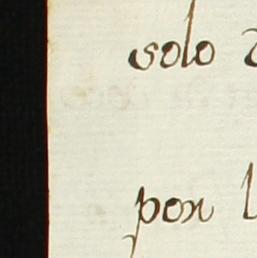 solo
por